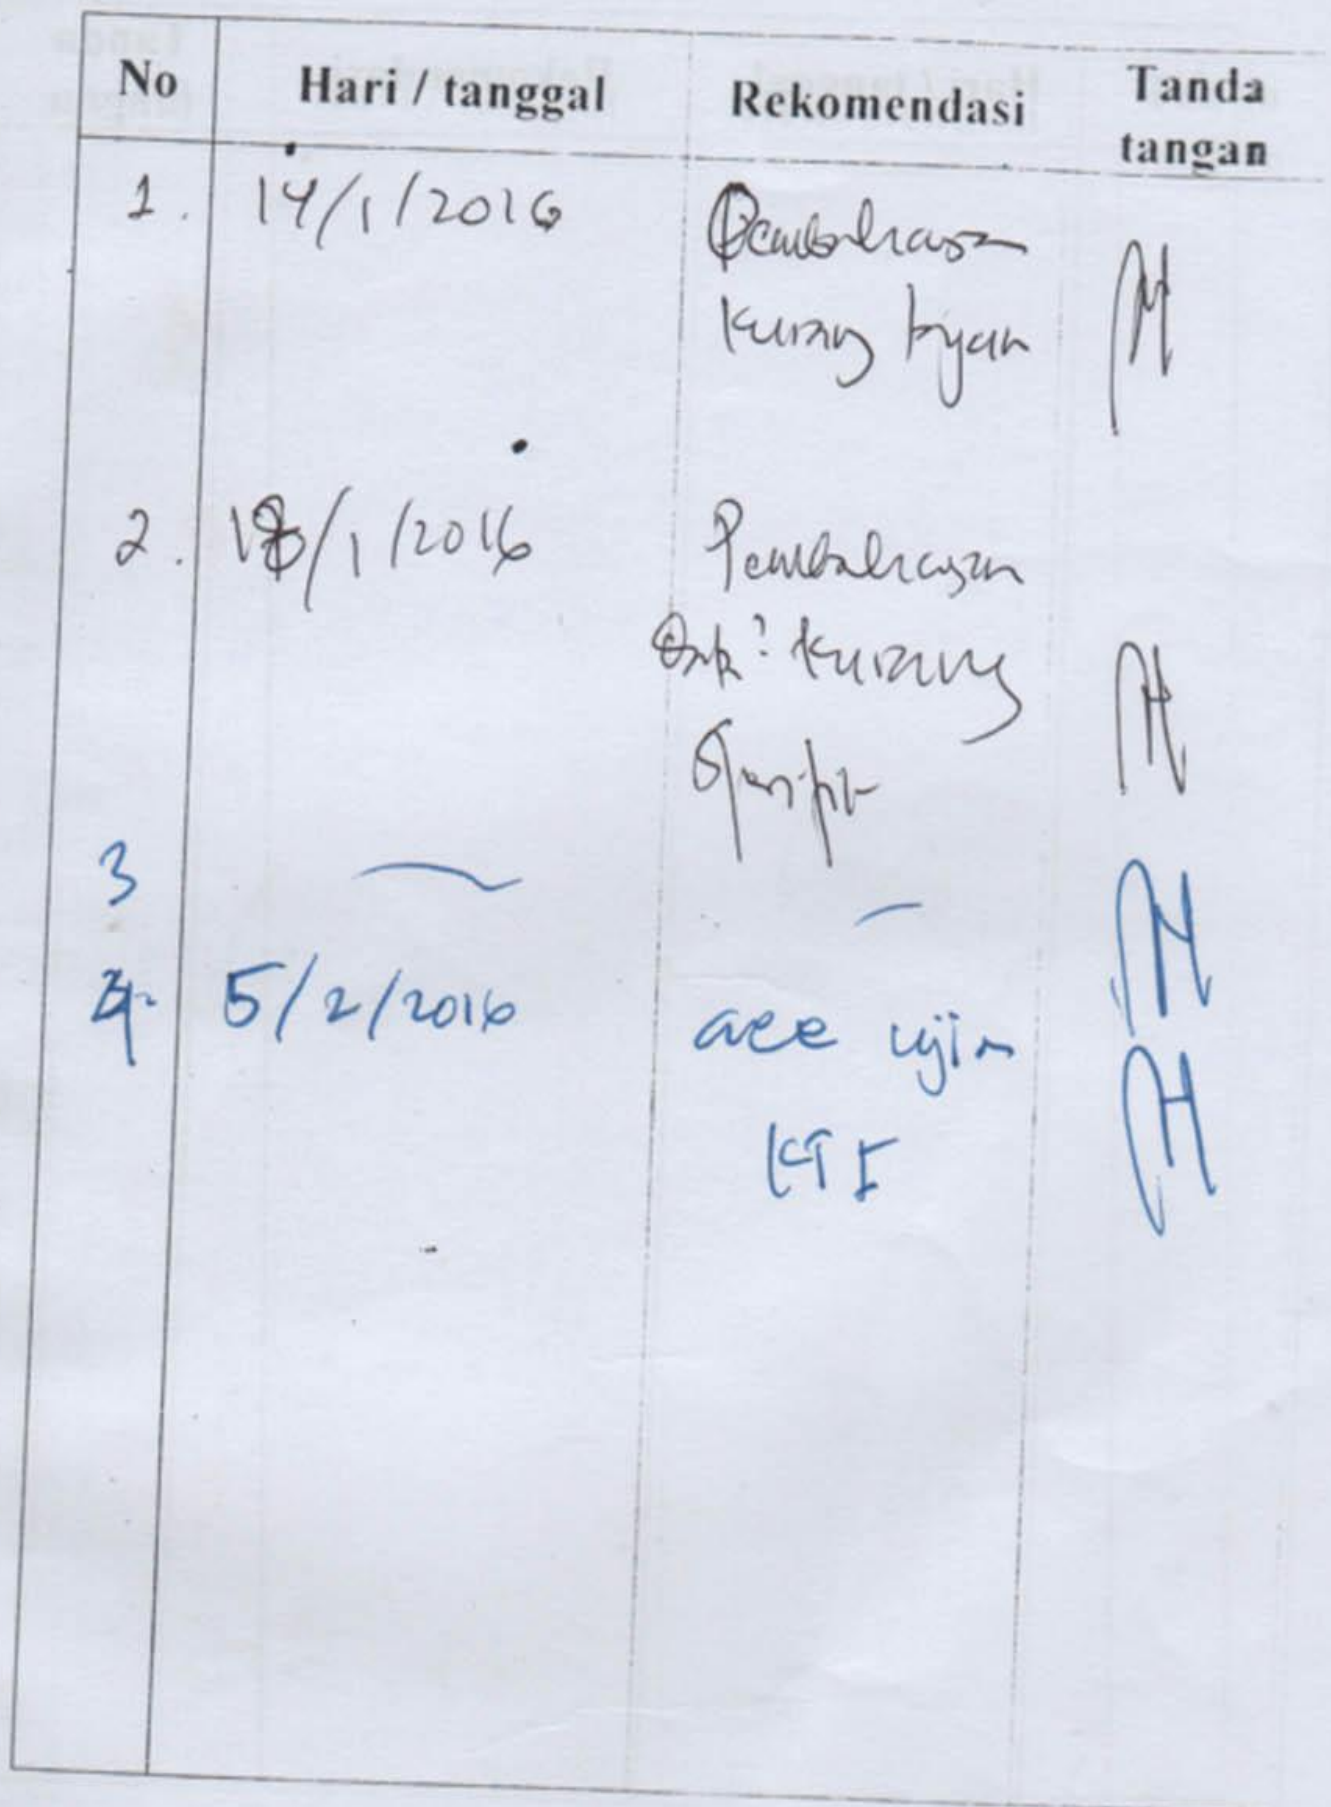 No Hari / tanggal Rekomendasi Tanda tangan
1. 14/1/2016 Pembahasan
kurang
2. 18/1/2016 Pembahasan
kurang
3
4. 5/2/2016 acc ujian
KTI